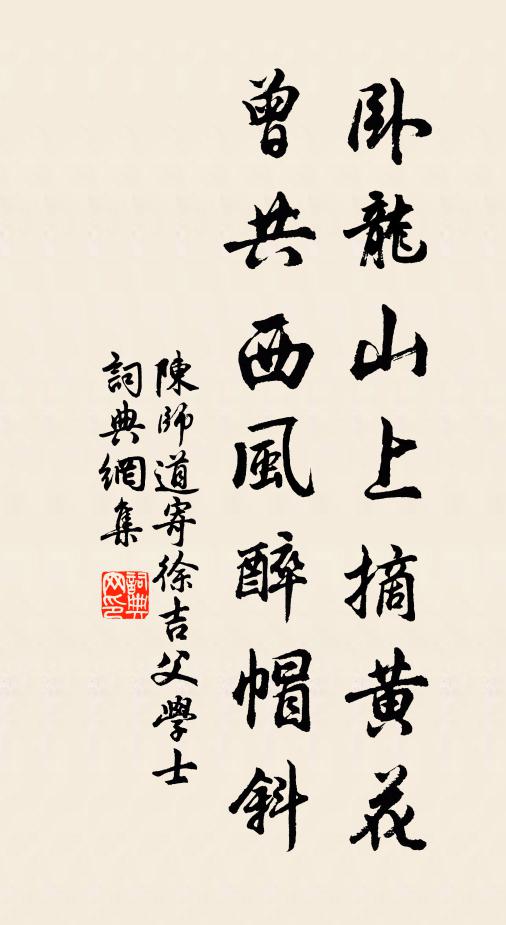 卧龍山上摘黄花
曾共西風醉帽斜
陳師道寄徐吉父學士
詞典網集
詞典網印